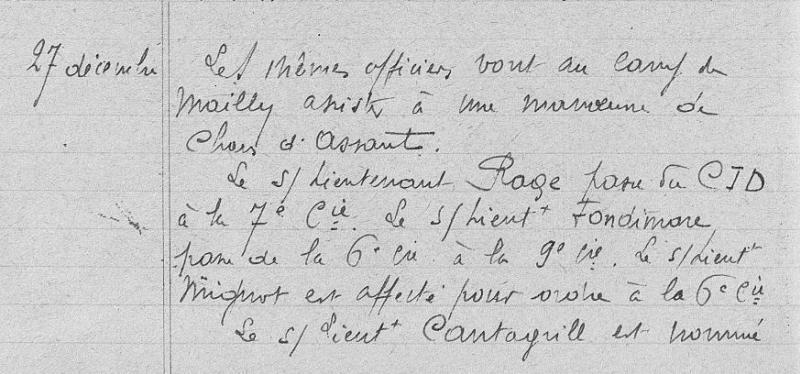 27 décembre
Les mêmes officiers vont au camp de
Mailly assister à une manœuvre de
Chars d'Assaut.
Le s/Lieutenant Rage passe du CID
à la 7e Cie. Le s/Lieutt Fondimare
passe de la 6e Cie à la 9e Cie. Le s/Lieutt
Mignot est affecté pour ordre à la 6e Cie
Le s/Lieutt Cantagrill est nommé